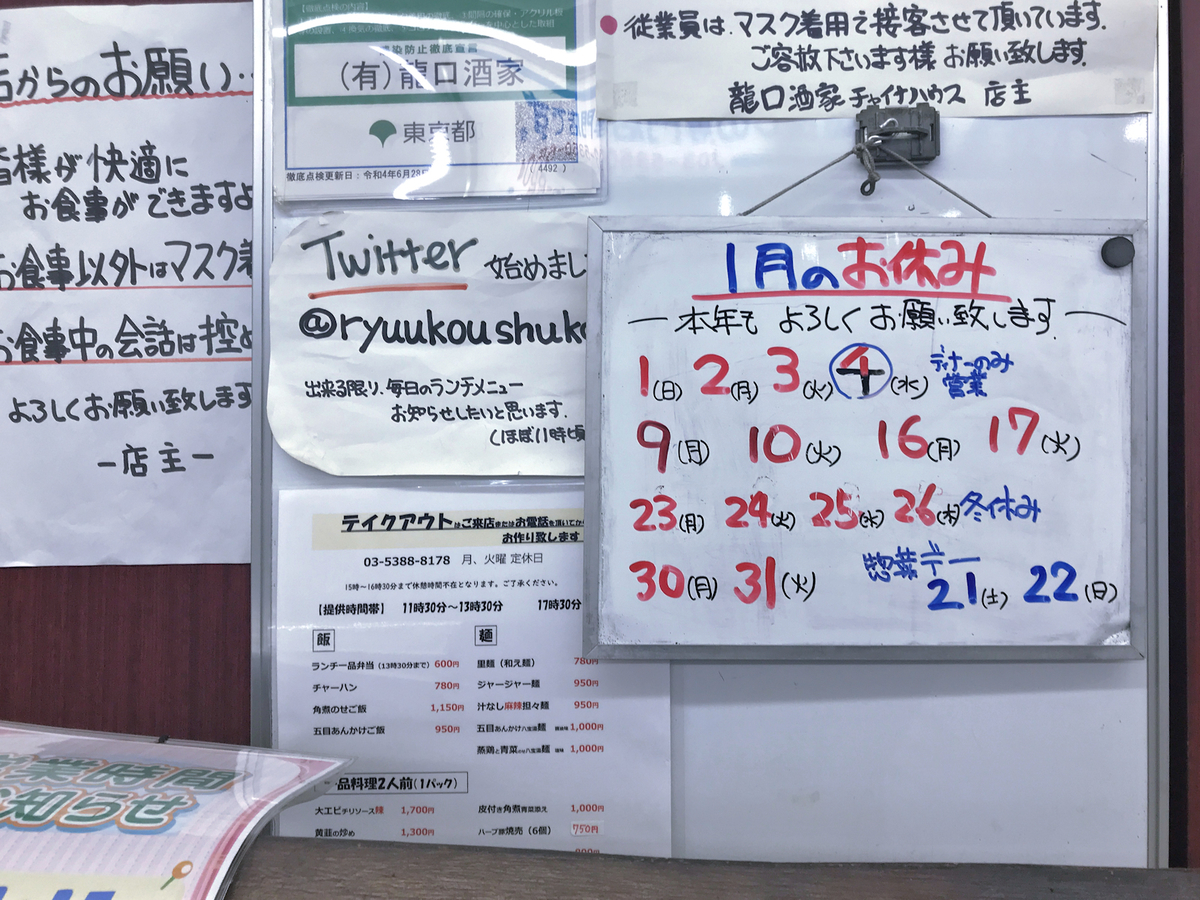 店からのお願い‥
皆様が快適に
お食事ができますよ
お食事以外はマスク着
お食事中の会話は控め
よろしくお願い致します
ー店主ー
【徹底点検の内容】
感染防止徹底宣言
(有)龍口酒家
東京都
4492 )
徹底点検更新日：令和4年6月28日
● 従業員は、マスク着用で接客させて頂いています。
ご容赦下さいます様 お願い致します。
龍口酒家 チャイナハウス 店主
Twitter 始めまし
@ryuukoushuka
出来る限り、毎日のランチメニュー
お知らせしたいと思います。
(ほぼ11時頃
1月のお休み
ー本年もよろしくお願い致します。ー
1(日) 2(月) 3(火) 4(水) ディナーのみ営業
9(月) 10(火) 16(月) 17(火)
23(月) 24(火) 25(水) 26(木) 冬休み
30(月) 31(火)
惣菜デー
21(土) 22(日)
テイクアウトはご来店またはお電話を頂いてから
お作り致します
03-5388-8178 月、火曜 定休日
15時～16時30分まで休憩時間不在となります。ご了承ください。
【提供時間帯】 11時30分～13時30分 17時30分
飯
ランチ一品弁当（13時30分まで）600円
チャーハン 780円
角煮のせご飯 1,150円
五目あんかけご飯 950円
麺
里麺（和え麺） 780円
ジャージャー麺 950円
汁なし麻辣担々麺 950円
五目あんかけ八宝湯麺 1,000円
蒸鶏と青菜のせ八宝湯麺 1,000円
品料理2人前(1パック)
大エビチリソース辣 1,700円
黄韮の炒め 1,300円
皮付き角煮青菜添え 1,000円
ハーブ豚焼売（6個） 750円
営業時間
お知らせ